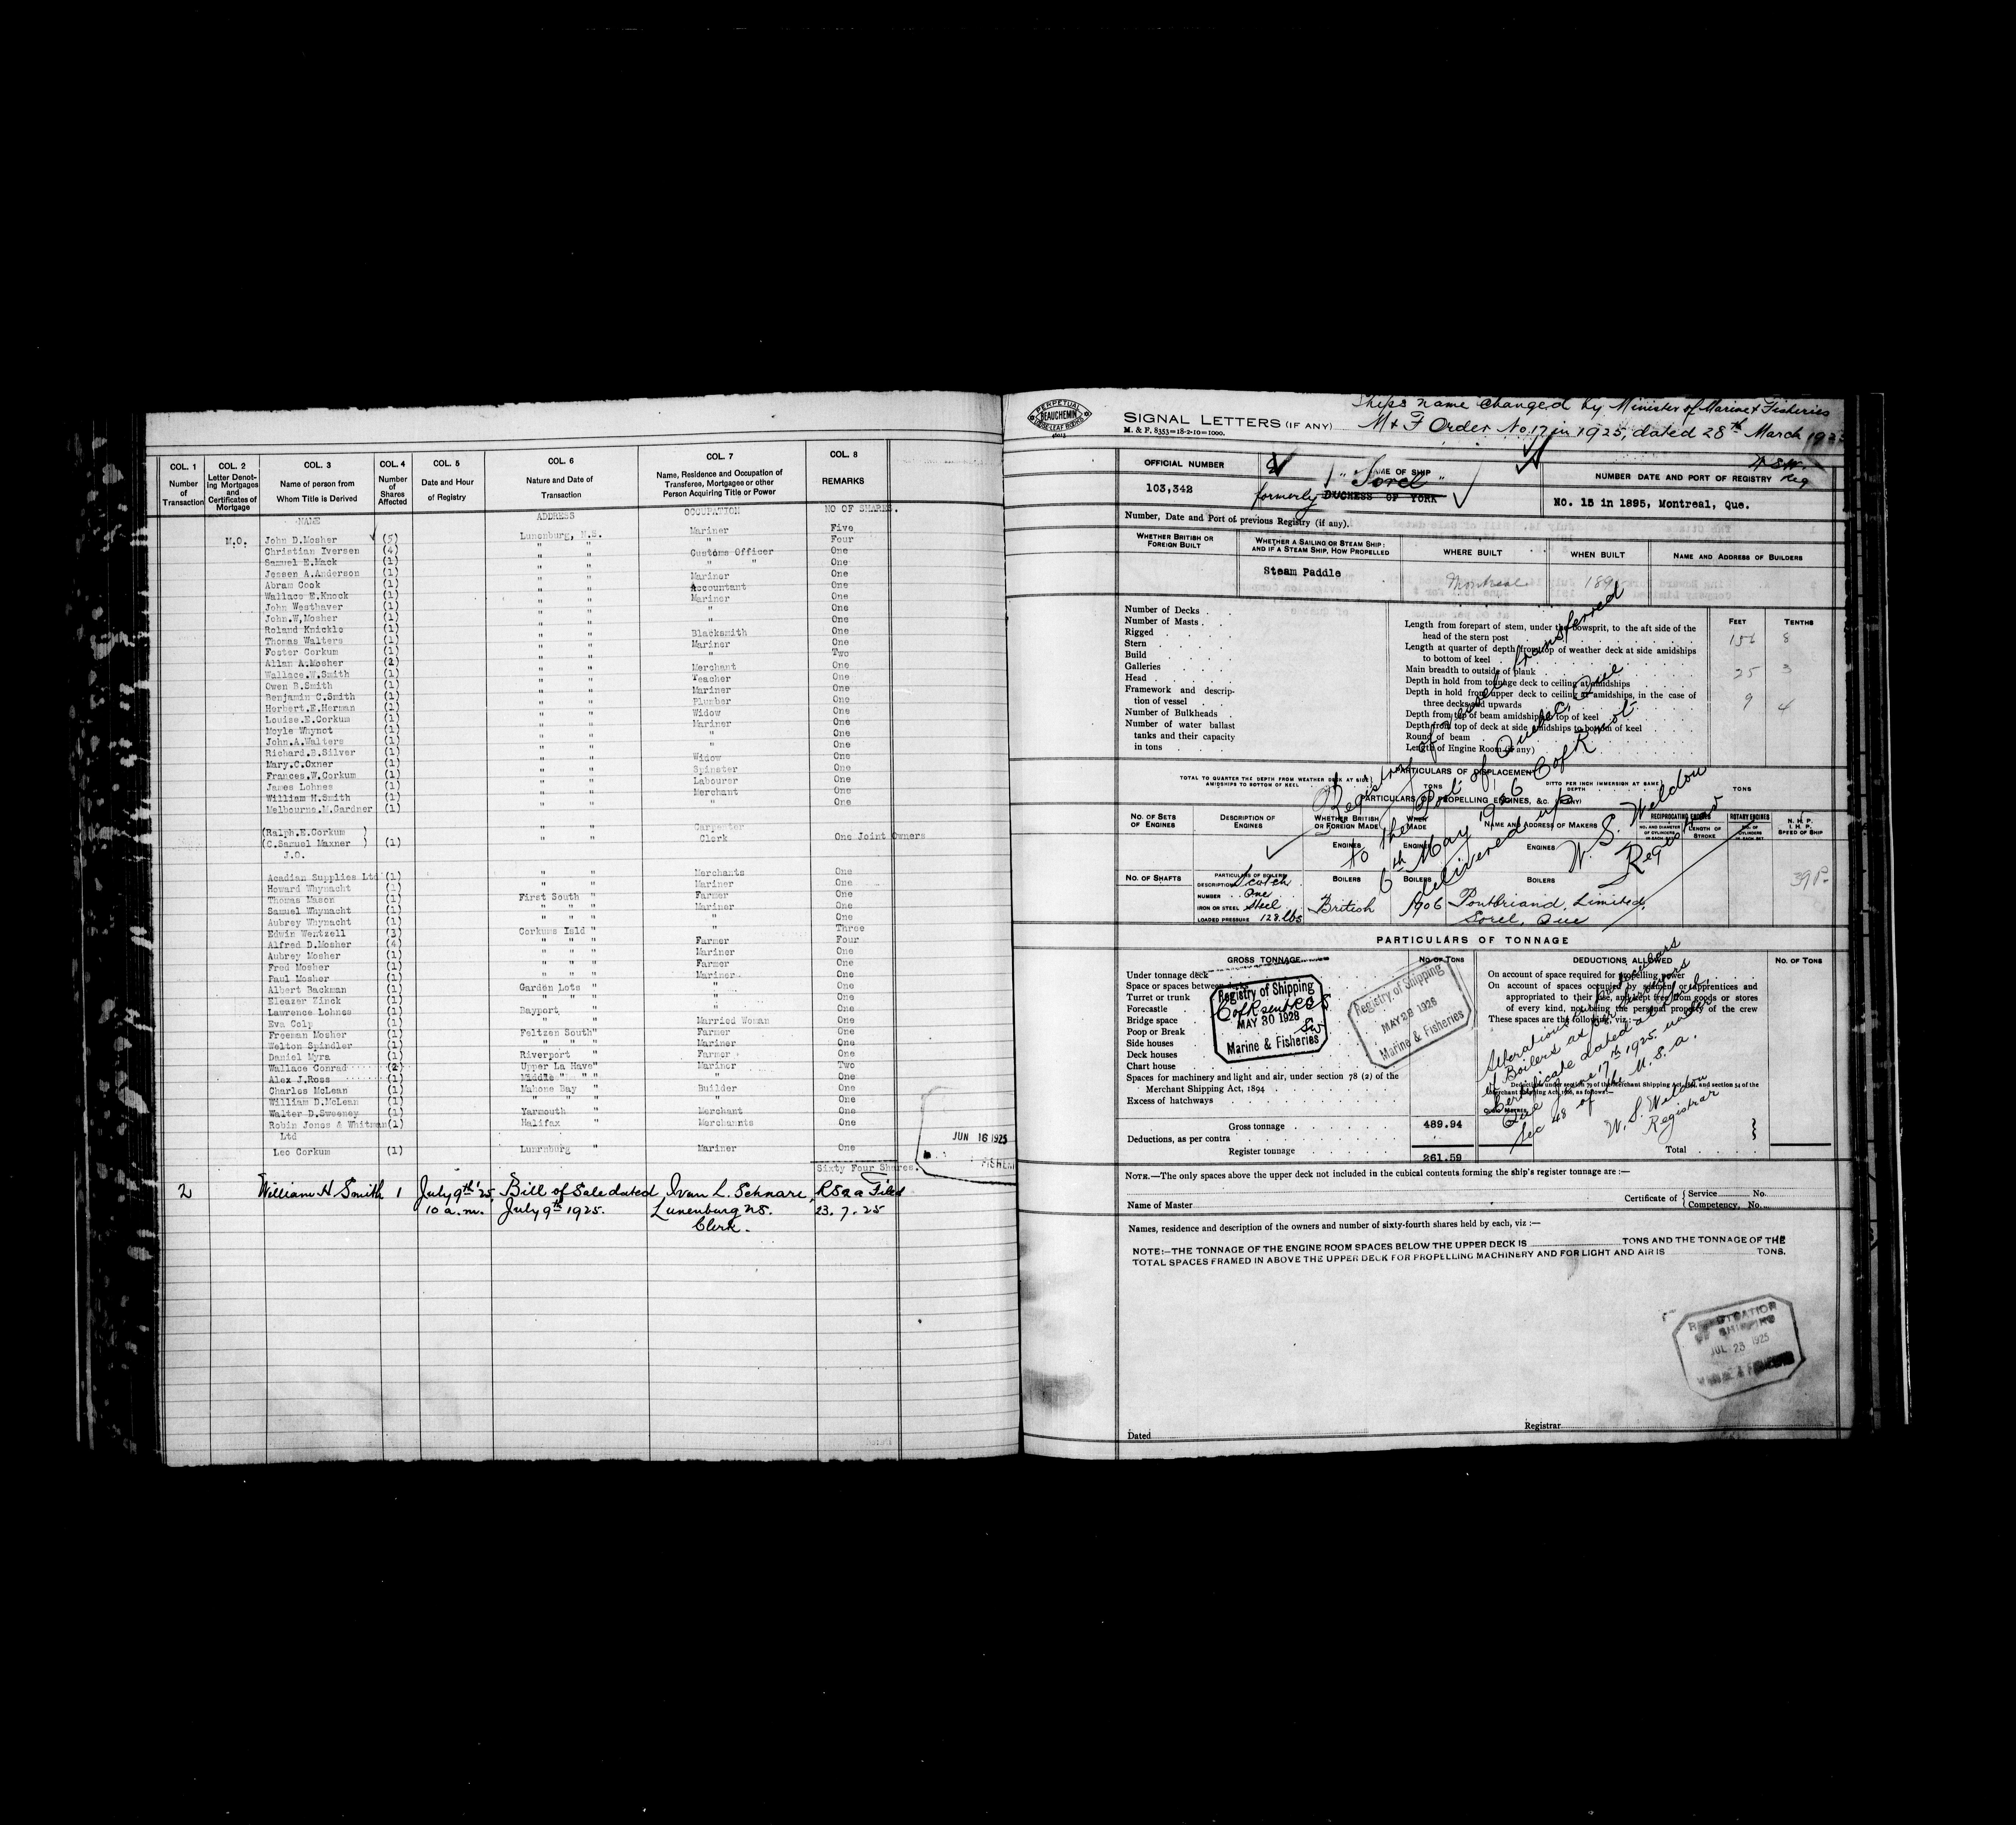 COL. 1 COL. 2 COL. 3 COL. 4 COL. 5 COL. 6 COL. 7 COL. 8
Number of Transaction
Letter Denoting Mortgages and Certificates of Mortgage
Name of person from Whom Title is Derived
Number of Shares Affected
Date and Hour of Registry
Nature and Date of Transaction
Name, Residence and Occupation of Transferee, Mortgagee or other Person Acquiring Title or Power
REMARKS
NAME ADDRESS OCCUPATION NO OF SHARES.
M.O. John D.Mosher (5) Lunenburg, N.S. Mariner Five
Christian Iversen (4) " " " Four
Samuel E.Mack (1) " " Customs Officer One
Jensen A.Anderson (1) " " " " One
Abram Cook (1) " " Mariner One
Wallace E.Knock (1) " " Accountant One
John Westhaver (1) " " Mariner One
John.W.Mosher (1) " " " One
Roland Knickle (1) " " One
Thomas Walters (1) " " Blacksmith One
Foster Corkum (1) " " Mariner One
Allan A.Mosher (2) " " " Two
Wallace.W.Smith (1) " " Merchant One
Owen B.Smith (1) " " Teacher One
Benjamin C.Smith (1) " " Mariner One
Herbert.E.Herman (1) " " Plumber One
Louise.E.Corkum (1) " " Widow One
Moyle Whynot (1) " " Mariner One
John.A.Walters (1) " " " One
Richard.B.Silver (1) " " " One
Mary.C.Oxner (1) " " Widow One
Frances.W.Corkum (1) " " Spinster One
James Lohnes (1) " " Labourer One
William H.Smith (1) " " Merchant One
Melbourne.M.Gardner (1) " " " One
(Ralph.E.Corkum ) " " Carpenter
(C.Samuel Maxner ) (1) " " Clerk One Joint Owners
J.O.
Acadian Supplies Ltd (1) " " Merchants One
Howard Whynacht (1) " " Mariner One
Thomas Mason (1) First South " Farmer One
Samuel Whynacht (1) " " " Mariner One
Aubrey Whynacht (1) " " " " One
Edwin Wentzell (3) Corkums Isld " " Three
Alfred D.Mosher (4) " " " Farmer Four
Aubrey Mosher (1) " " " Mariner One
Fred Mosher (1) " " " Farmer One
Paul Mosher (1) " " " Mariner One
Albert Backman (1) Garden Lots " " One
Eleazer Zinck (1) " " " " One
Lawrence Lohnes (1) Bayport " " One
Eva Colp (1) " " Married Woman One
Freeman Mosher (1) Feltzen South" Farmer One
Welton Spindler (1) " " " Mariner One
Daniel Myra (1) Riverport " Farmer One
Wallace Conrad (2) Upper La Have" Mariner Two
Alex J.Ross (1) Middle " " " " One
Charles McLean (1) Mahone Bay " Builder One
William D.McLean (1) " " " " One
Walter D.Sweeney (1) Yarmouth " Merchant One
Robin Jones & Whitman (1) Halifax " Merchannts One
Ltd
Leo Corkum (1) Lunenburg " Mariner One
Sixty Four Shares.
JUN 16 1925
2 William H Smith 1 July 9th '25, Bill of Sale dated Ivan L. Schnare, Filed
10 a.m. July 9th 1925. Lunenburg NS. 23.7.25
Clerk.
PERPETUAL
BEAUCHEMIN
LOOSE LEAF BOOKS
SIGNAL LETTERS (IF ANY)
M. & F. 8353=18-2-10=1000.
Ships name changed by Minister of Marine & Fisheries
M & F Order No. 17 in 1925, dated 28th March
OFFICIAL NUMBER NAME OF SHIP NUMBER DATE AND PORT OF REGISTRY
103,342 "Sorel" No. 15 in 1895, Montreal, Que.
formerly DUCHESS OF YORK
Reg
Number, Date and Port of previous Registry (if any).
WHETHER BRITISH OR FOREIGN BUILT
WHETHER A SAILING OR STEAM SHIP: AND IF A STEAM SHIP, HOW PROPELLED
WHERE BUILT WHEN BUILT NAME AND ADDRESS OF BUILDERS
Steam Paddle Montreal 189
Number of Decks
Number of Masts
Rigged
Stern
Build
Galleries
Head
Framework and description of vessel
Number of Bulkheads
Number of water ballast tanks and their capacity in tons
FEET TENTHS
Length from forepart of stem, under the bowsprit, to the aft side of the head of the stern post 156 8
Length at quarter of depth from top of weather deck at side amidships to bottom of keel
Main breadth to outside of plank 25 3
Depth in hold from tonnage deck to ceiling at amidships 9 4
Depth in hold from upper deck to ceiling at amidships, in the case of three decks and upwards
Depth from top of beam amidships to top of keel
Depth from top of deck at side amidships to bottom of keel
Round of beam
Length of Engine Room (if any)
Registry of vessel transferred
to the Port of Quebec, Que
6th May 1926 C of R not
delivered up
W. S. Weldon
Registrar
PARTICULARS OF DISPLACEMENT
TOTAL TO QUARTER THE DEPTH FROM WEATHER DECK AT SIDE AMIDSHIPS TO BOTTOM OF KEEL TONS
DITTO PER INCH IMMERSION AT SAME DEPTH TONS
PARTICULARS OF PROPELLING ENGINES, &C. (IF ANY)
NO. OF SETS OF ENGINES
DESCRIPTION OF ENGINES
WHETHER BRITISH OR FOREIGN MADE
WHEN MADE
NAME AND ADDRESS OF MAKERS
RECIPROCATING ENGINES
NO. AND DIAMETER OF CYLINDERS IN EACH SET
LENGTH OF STROKE
ROTARY ENGINES
NO. OF CYLINDERS IN EACH SET
N. H. P.
I. H. P.
SPEED OF SHIP
ENGINES ENGINES ENGINES
NO. OF SHAFTS PARTICULARS OF BOILERS BOILERS BOILERS BOILERS
DESCRIPTION Scotch
NUMBER One
IRON OR STEEL Steel British 1906 Pontbriand, Limited,
LOADED PRESSURE 128 lbs Sorel, Que
PARTICULARS OF TONNAGE
GROSS TONNAGE NO. OF TONS DEDUCTIONS ALLOWED NO. OF TONS
Under tonnage deck
Space or spaces between decks
Turret or trunk
Forecastle
Bridge space
Poop or Break
Side houses
Deck houses
Chart house
Spaces for machinery and light and air, under section 78 (2) of the
Merchant Shipping Act, 1894
Excess of hatchways
Gross tonnage 489.94
Deductions, as per contra
Register tonnage 261.59
On account of space required for propelling power
On account of spaces occupied by seamen or apprentices and appropriated to their use, and kept free from goods or stores of every kind, not being the personal property of the crew
These spaces are the following, viz :—
Deductions under section 79 of the Merchant Shipping Act, 1894, and section 54 of the Merchant Shipping Act, 1906, as follows:—
Total
Registry of Shipping
MAY 30 1928
Marine & Fisheries
Registry of Shipping
MAY 28 1926
Marine & Fisheries
Alterations in particulars
of Boilers as per Surveyors
Certificate dated at Sorel
Que June 17th 1925. under
Sec 48 of the M. S. A.
W. S. Weldon
Registrar
NOTE.—The only spaces above the upper deck not included in the cubical contents forming the ship's register tonnage are :—
Name of Master Certificate of { Service No.
Competency, No.
Names, residence and description of the owners and number of sixty-fourth shares held by each, viz :—
NOTE:—THE TONNAGE OF THE ENGINE ROOM SPACES BELOW THE UPPER DECK IS TONS AND THE TONNAGE OF THE
TOTAL SPACES FRAMED IN ABOVE THE UPPER DECK FOR PROPELLING MACHINERY AND FOR LIGHT AND AIR IS TONS.
REGISTRATION
OF SHIPPING
JUL 23 1925
Dated Registrar